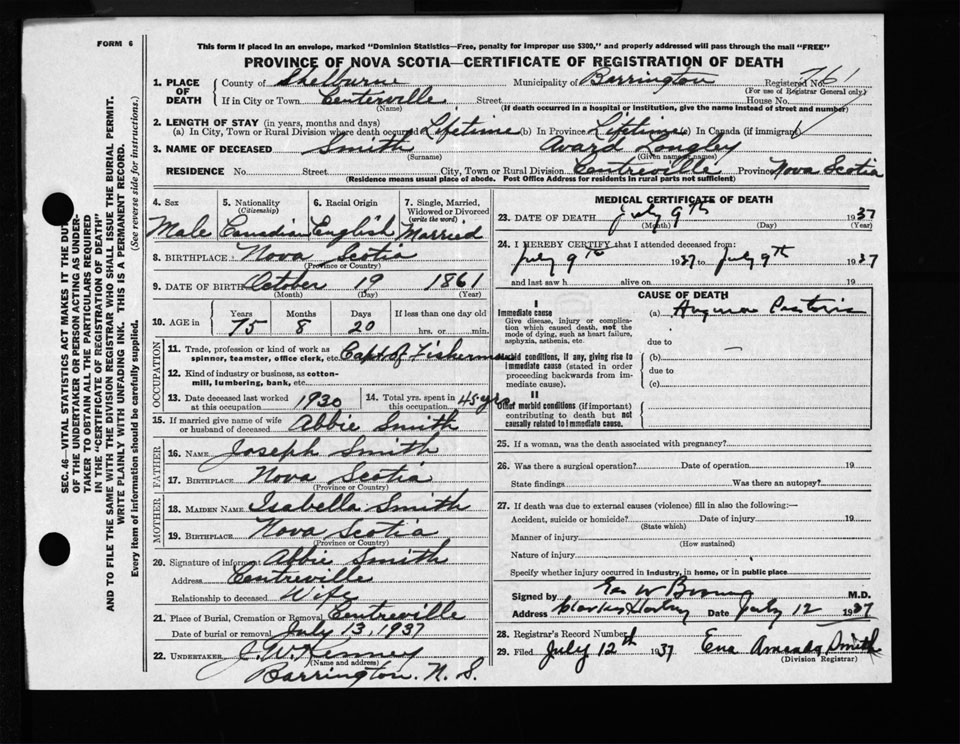 FORM 6
This form if placed in an envelope, marked "Dominion Statistics—Free, penalty for improper use $300," and properly addressed will pass through the mail "FREE"
PROVINCE OF NOVA SCOTIA—CERTIFICATE OF REGISTRATION OF DEATH
1. PLACE OF DEATH
County of Shelburne Municipality of Barrington Registered No. 761
(For use of Registrar General only)
If in City or Town Centerville Street House No.
(Name) (If death occurred in a hospital or institution, give the name instead of street and number)
2. LENGTH OF STAY (in years, months and days)
(a) In City, Town or Rural Division where death occurred Lifetime (b) In Province Lifetime (c) In Canada (if immigrant)
3. NAME OF DECEASED Smith Avard Longley
(Surname) (Given name or names)
RESIDENCE No. Street City, Town or Rural Division Centreville Province Nova Scotia
(Residence means usual place of abode. Post Office Address for residents in rural parts not sufficient)
4. Sex Male
5. Nationality (Citizenship) Canadian
6. Racial Origin English
7. Single, Married, Widowed or Divorced (write the word) Married
8. BIRTHPLACE Nova Scotia
(Province or Country)
9. DATE OF BIRTH October 19 1861
(Month) (Day) (Year)
10. AGE in Years Months Days If less than one day old
75 8 20 hrs. or min.
OCCUPATION
11. Trade, profession or kind of work as spinner, teamster, office clerk, etc. Capt of Fisherman
12. Kind of industry or business, as cotton-mill, lumbering, bank, etc.
13. Date deceased last worked at this occupation 1930
14. Total yrs. spent in this occupation 45 yrs
15. If married give name of wife or husband of deceased Abbie Smith
FATHER
16. NAME Joseph Smith
17. BIRTHPLACE Nova Scotia
(Province or Country)
MOTHER
18. MAIDEN NAME Isabella Smith
19. BIRTHPLACE Nova Scotia
(Province or Country)
20. Signature of informant Abbie Smith
Address Centreville
Relationship to deceased Wife
21. Place of Burial, Cremation or Removal Centreville
Date of burial or removal July 13, 1937
22. UNDERTAKER J. W. Kenney
(Name and address)
Barrington. N. S.
MEDICAL CERTIFICATE OF DEATH
23. DATE OF DEATH July 9th 1937
(Month) (Day) (Year)
24. I HEREBY CERTIFY that I attended deceased from
July 9th 1937 to July 9th 1937
and last saw h alive on 19
CAUSE OF DEATH
I
Immediate cause (a) Angina Pectoris
Give disease, injury or complication which caused death, not the mode of dying, such as heart failure, asphyxia, asthenia, etc.
due to
Morbid conditions, if any, giving rise to immediate cause (stated in order proceeding backwards from immediate cause).
(b) —
due to
(c)
II
Other morbid conditions (if important) contributing to death but not causally related to immediate cause.
25. If a woman, was the death associated with pregnancy?
26. Was there a surgical operation? Date of operation 19
State findings Was there an autopsy?
27. If death was due to external causes (violence) fill in also the following:—
Accident, suicide or homicide? Date of injury 19
(State which)
Manner of injury
(How sustained)
Nature of injury
Specify whether injury occurred in industry, in home, or in public place
Signed by M.D.
Address Clarks Harbour Date July 12 1937
28. Registrar's Record Number
29. Filed July 12th 1937 Smith
(Division Registrar)
SEC. 46—VITAL STATISTICS ACT MAKES IT THE DUTY
OF THE UNDERTAKER OR PERSON ACTING AS UNDER-
TAKER TO OBTAIN ALL THE PARTICULARS REQUIRED
IN THE "CERTIFICATE OF REGISTRATION OF DEATH"
AND TO FILE THE SAME WITH THE DIVISION REGISTRAR WHO SHALL ISSUE THE BURIAL PERMIT.
WRITE PLAINLY WITH UNFADING INK. THIS IS A PERMANENT RECORD.
Every item of information should be carefully supplied. (See reverse side for instructions.)